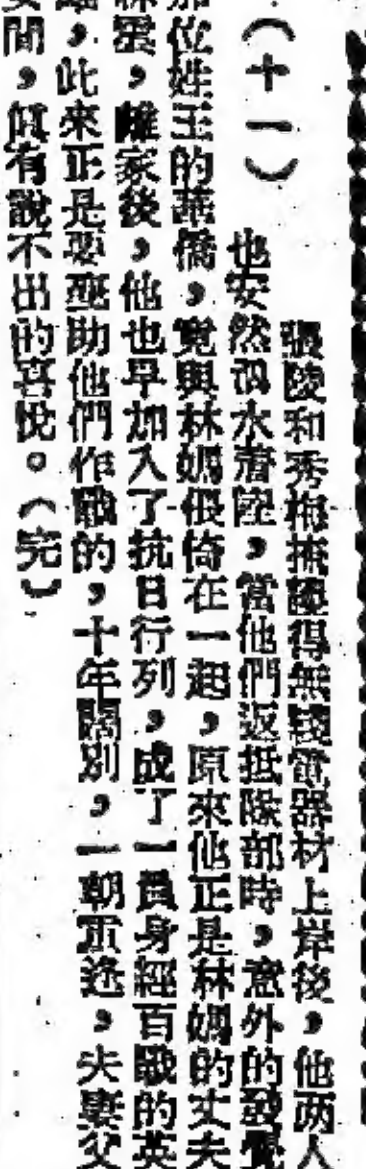 （十一）
張陵和秀梅掩護得無綫電器材上岸後，他两人
也安然泅水着陸，當他們返抵隊部時，意外的發覺
那位姓王的華僑，竟與林媽偎倚在一起，原來他正是林媽的丈夫
林雲，離家後，他也早加入了抗日行列，成了一員身經百戰的英
雄，此來正是要應助他們作戰的，十年闊別，一朝重逢，夫妻父
女間，眞有說不出的喜悅。（完）